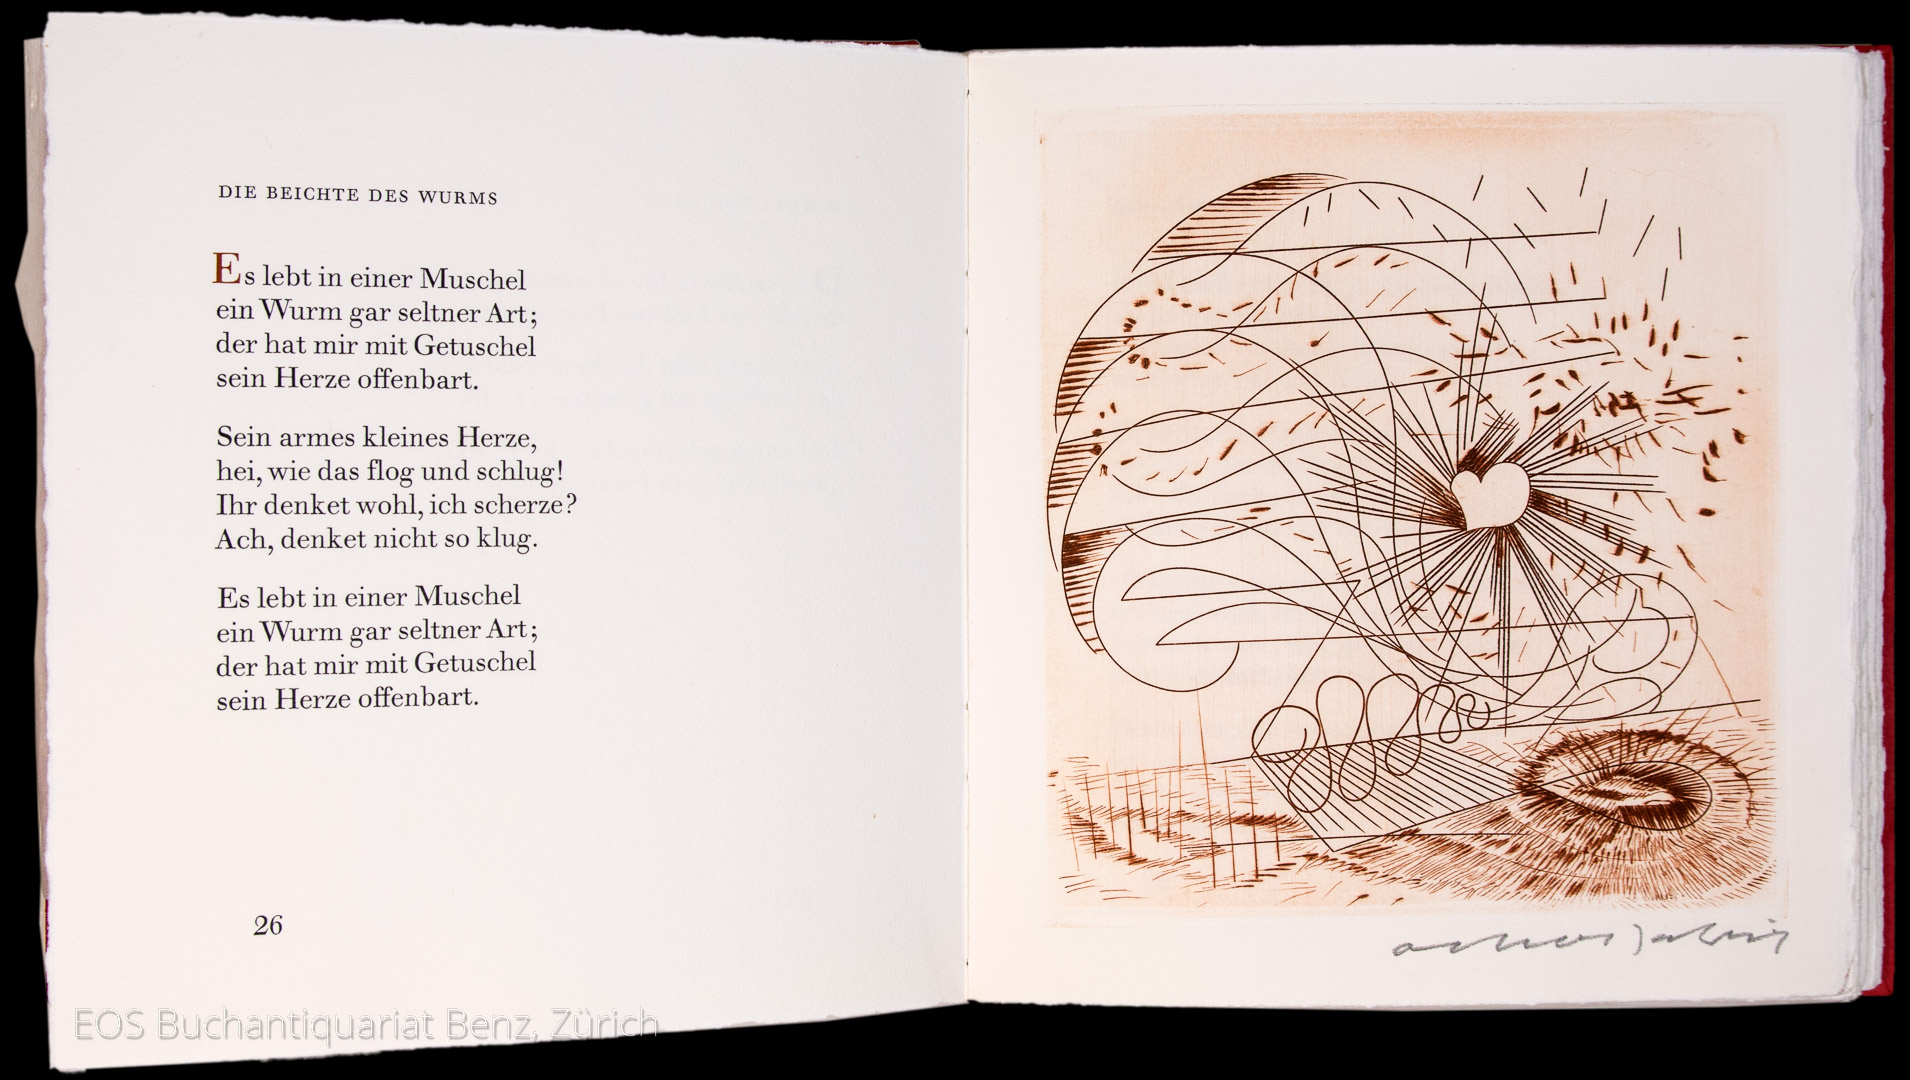 DIE BEICHTE DES WURMS
Es lebt in einer Muschel
ein Wurm gar seltner Art;
der hat mir mit Getuschel
sein Herze offenbart.
Sein armes kleines Herze,
hei, wie das flog und schlug!
Ihr denket wohl, ich scherze?
Ach, denket nicht so klug.
Es lebt in einer Muschel
ein Wurm gar seltner Art;
der hat mir mit Getuschel
sein Herze offenbart.
26
EOS Buchantiquariat Benz, Zürich